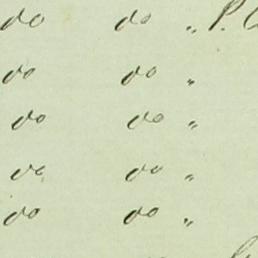 do do " P.
do do "
do do "
do do "
do do "